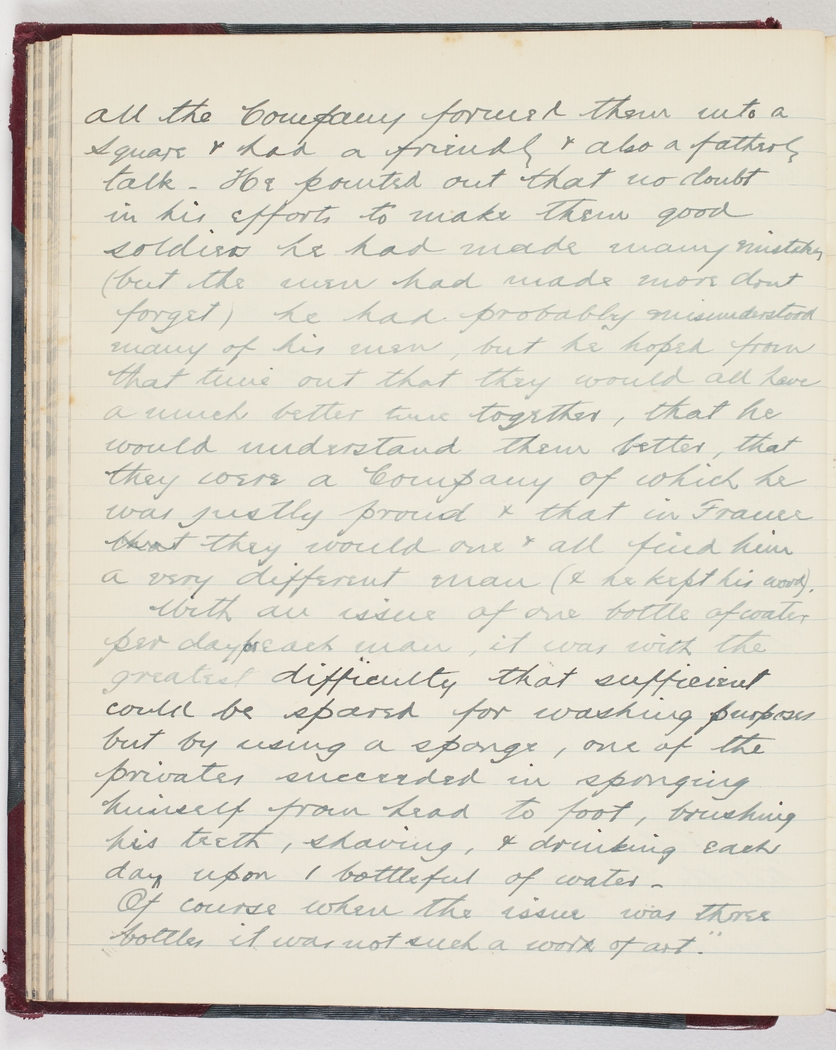 all the Company formed them into a
square & had a friendly & also a fatherly
talk - He pointed out that no doubt
in his efforts to make them good
soldiers he had made many mistakes
(but the men had made more dont
forget) he had probably misunderstood
many of his men, but he hoped from
that time out that they would all have
a much better time together, that he
would understand them better, that
they were a Company of which he
was justly proud & that in France
that they would one & all find him
a very different man (& he kept his word).
With an issue of one bottle of water
per day each man, it was with the
greatest difficulty that sufficient
could be spared for washing purposes
but by using a sponge, one of the
privates succeeded in sponging
himself from head to foot, brushing
his teeth, shaving, & drinking each
day upon 1 bottleful of water -
Of course when the issue was three
bottles it was not such a work of art."